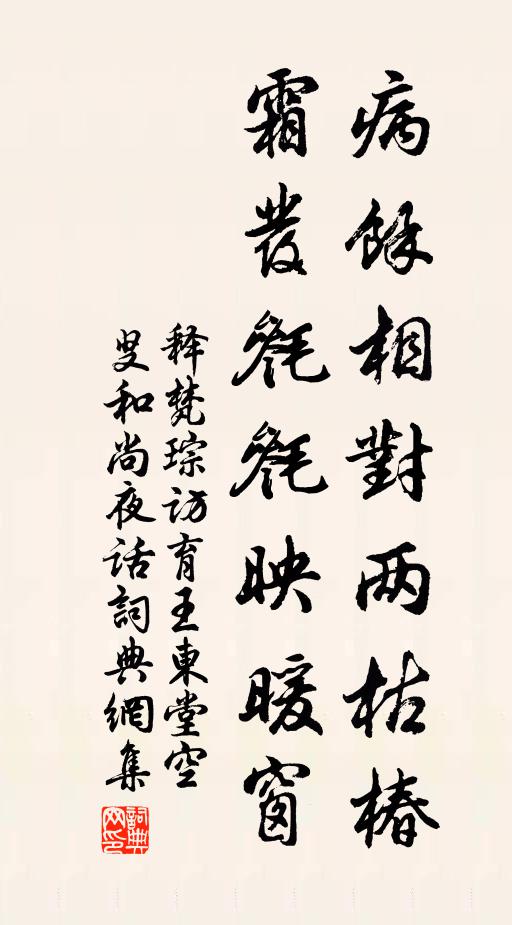 病餘相對兩枯椿
霜發毿毿映暖窗
释梵琮访育王東堂空
叟和尚夜话詞典網集
詞典网印